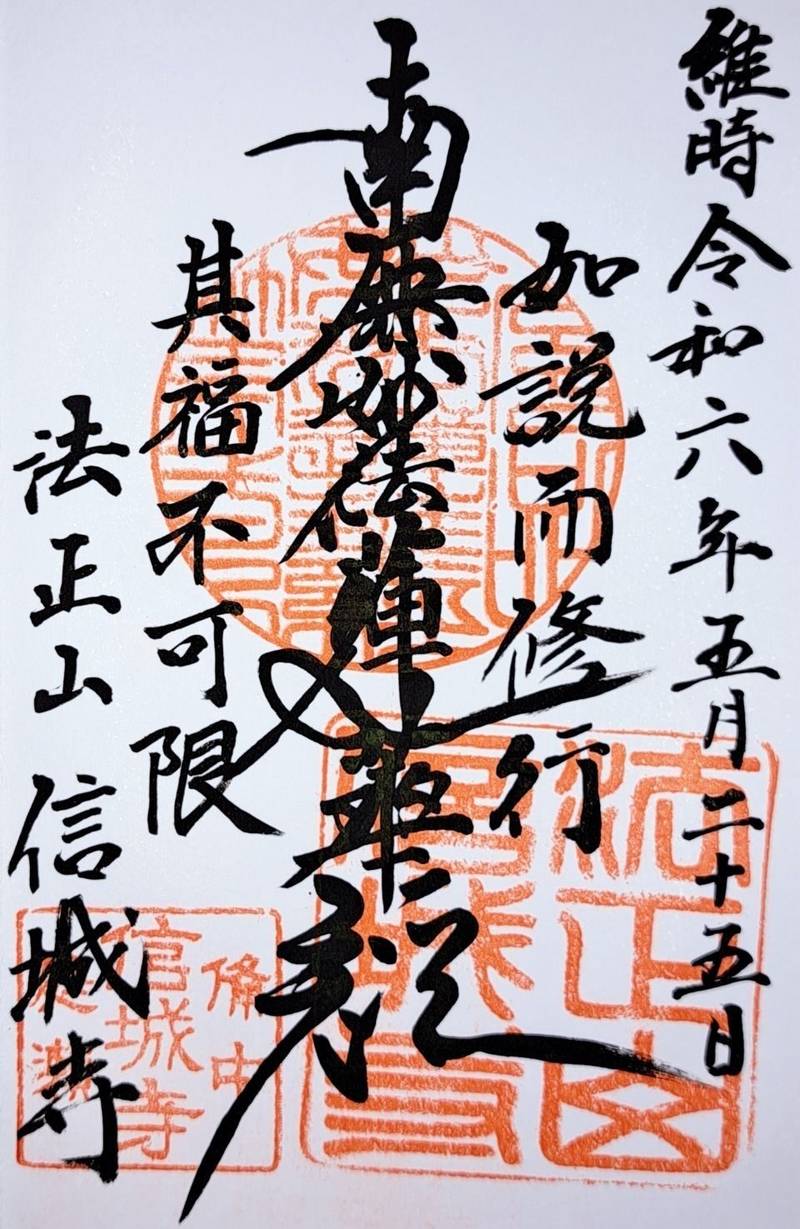 維時令和六年五月二十五日
如説而修行
南無妙法蓮華経
其福不可限
法正山 信城寺
法正山
信城寺
備中
信城寺